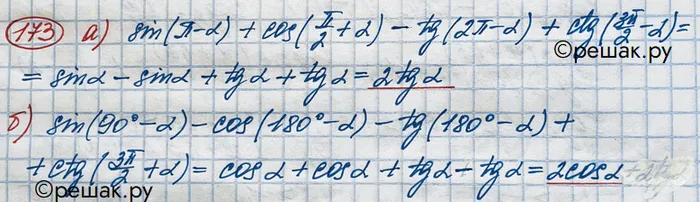 173 а) sin(π-α) + cos(π/2+α) - tg(2π-α) + ctg(3π/2-α)=
= sinα - sinα + tgα + tgα = 2tgα
©решак.ру
б) sin(90°-α) - cos(180°-α) - tg(180°-α) +
+ctg(3π/2+α) = cosα + cosα + tgα - tgα = 2cosα
©решак.ру